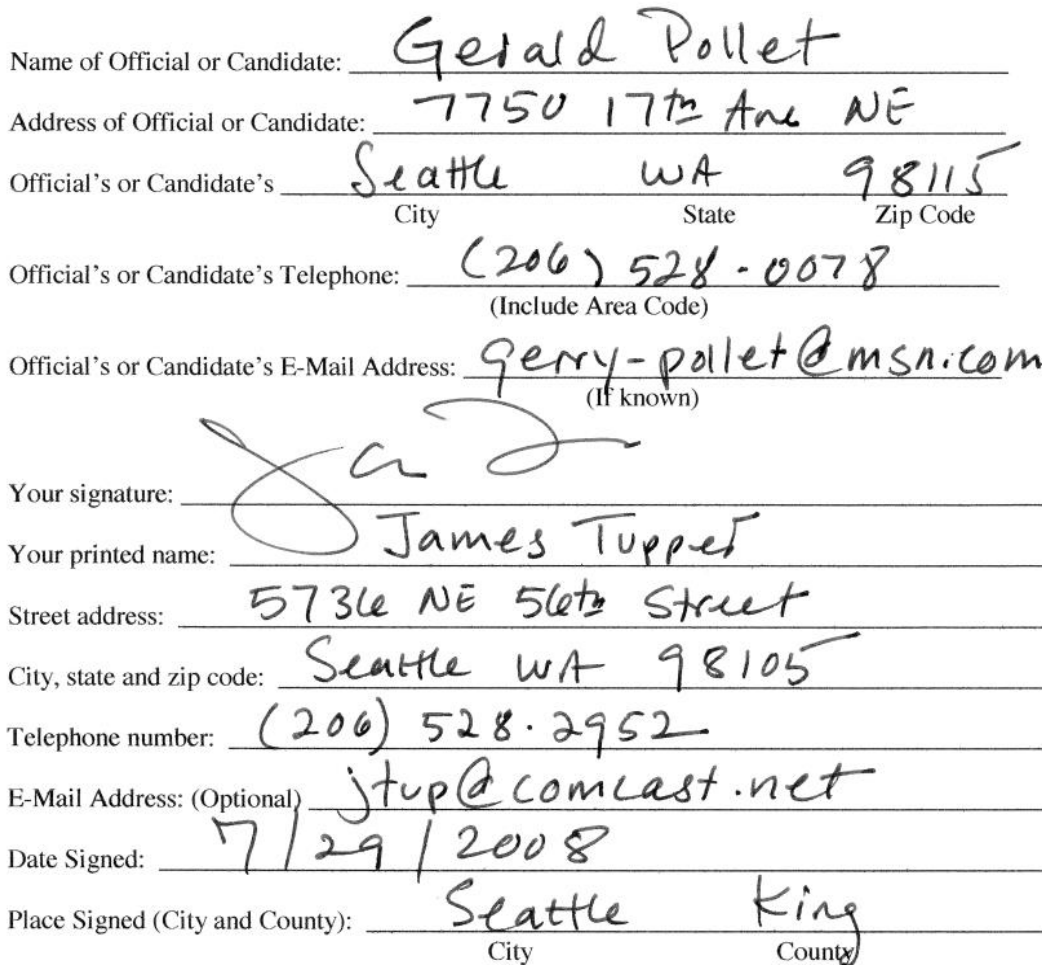 Name of Official or Candidate: Gerald Pollet
Address of Official or Candidate: 7750 17th Ave NE
Official's or Candidate's Seattle WA 98115
City State Zip Code
Official's or Candidate's Telephone: (206) 528-0078
(Include Area Code)
Official's or Candidate's E-Mail Address: gerry-pollet@msn.com
(If known)
Your signature:
Your printed name: James Tupper
Street address: 5736 NE 56th Street
City, state and zip code: Seattle WA 98105
Telephone number: (206) 528-2952
E-Mail Address: (Optional) jtup@comcast.net
Date Signed: 7/29/2008
Place Signed (City and County): Seattle King
City County